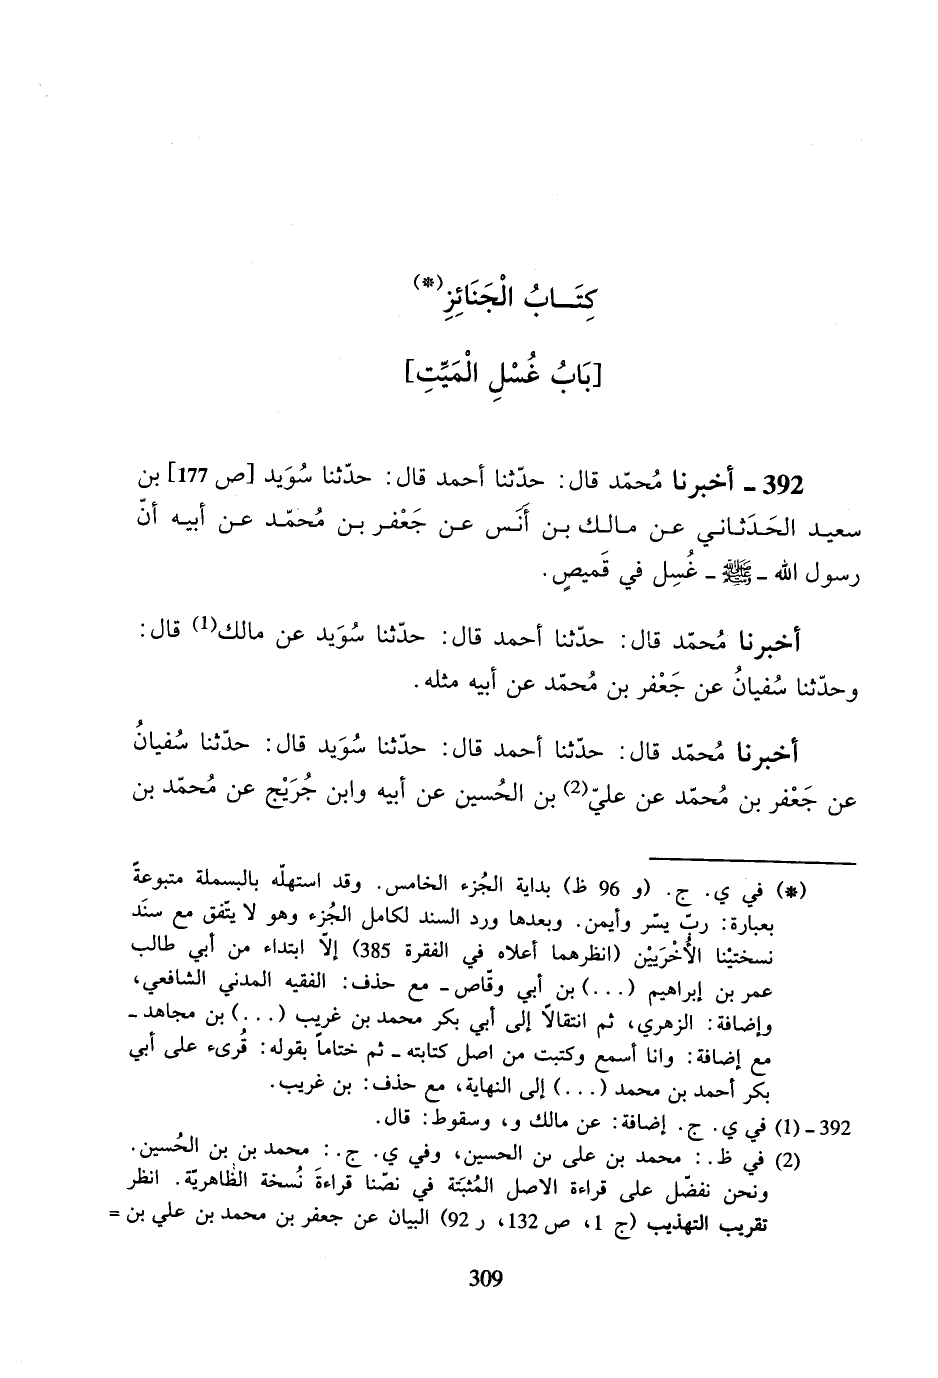 كِتَــابُ الْجَنَائِزِ(*)
[بَابُ غُسْلِ الْمَيِّتِ]
392 - أخبرنا مُحمّد قال: حدّثنا أحمد قال: حدّثنا سُوَيد [ص 177] بن
سعيد الحَدَثاني عن مالك بن أَنَس عن جَعْفر بن مُحمّد عن أبيه أنّ
رسول الله - ﷺ - غُسِل في قَميصٍ.
أخبرنا مُحمّد قال: حدّثنا أحمد قال: حدّثنا سُوَيد عن مالك(1) قال:
وحدّثنا سُفيانُ عن جَعْفر بن مُحمّد عن أبيه مثله.
أخبرنا مُحمّد قال: حدّثنا أحمد قال: حدّثنا سُوَيد قال: حدّثنا سُفيانُ
عن جَعْفر بن مُحمّد عن عليّ(2) بن الحُسين عن أبيه وابن جُرَيْج عن مُحمّد بن
(*) في ي. ج. (و 96 ظ) بداية الجُزء الخامس. وقد استهلّه بالبسملة متبوعةً
بعبارة: ربّ يسّر وأيمن. وبعدها ورد السند لكامل الجُزء وهو لا يتّفق مع سنَد
نسختيْنا الأُخْرَيَيْن (انظرهما أعلاه في الفقرة 385) إلّا ابتداء من أبي طالب
عمر بن إبراهيم (...) بن أبي وقّاص - مع حذف: الفقيه المدني الشافعي،
وإضافة: الزهري، ثم انتقالاً إلى أبي بكر محمد بن غريب (...) بن مجاهد -
مع إضافة: وانا أسمع وكتبت من اصل كتابته - ثم ختاماً بقوله: قُرىء على أبي
بكر أحمد بن محمد (...) إلى النهاية، مع حذف: بن غريب.
392 - (1) في ي. ج. إضافة: عن مالك و، وسقوط: قال.
(2) في ظ.: محمد بن على بن الحسين، وفي ي. ج.: محمد بن بن الحُسين.
ونحن نفضّل على قراءة الاصل المُثبَتة في نصّنا قراءةَ نُسخة الظاهريّة. انظر
تقريب التهذيب (ج 1، ص 132، ر 92) البيان عن جعفر بن محمد بن علي بن =
309